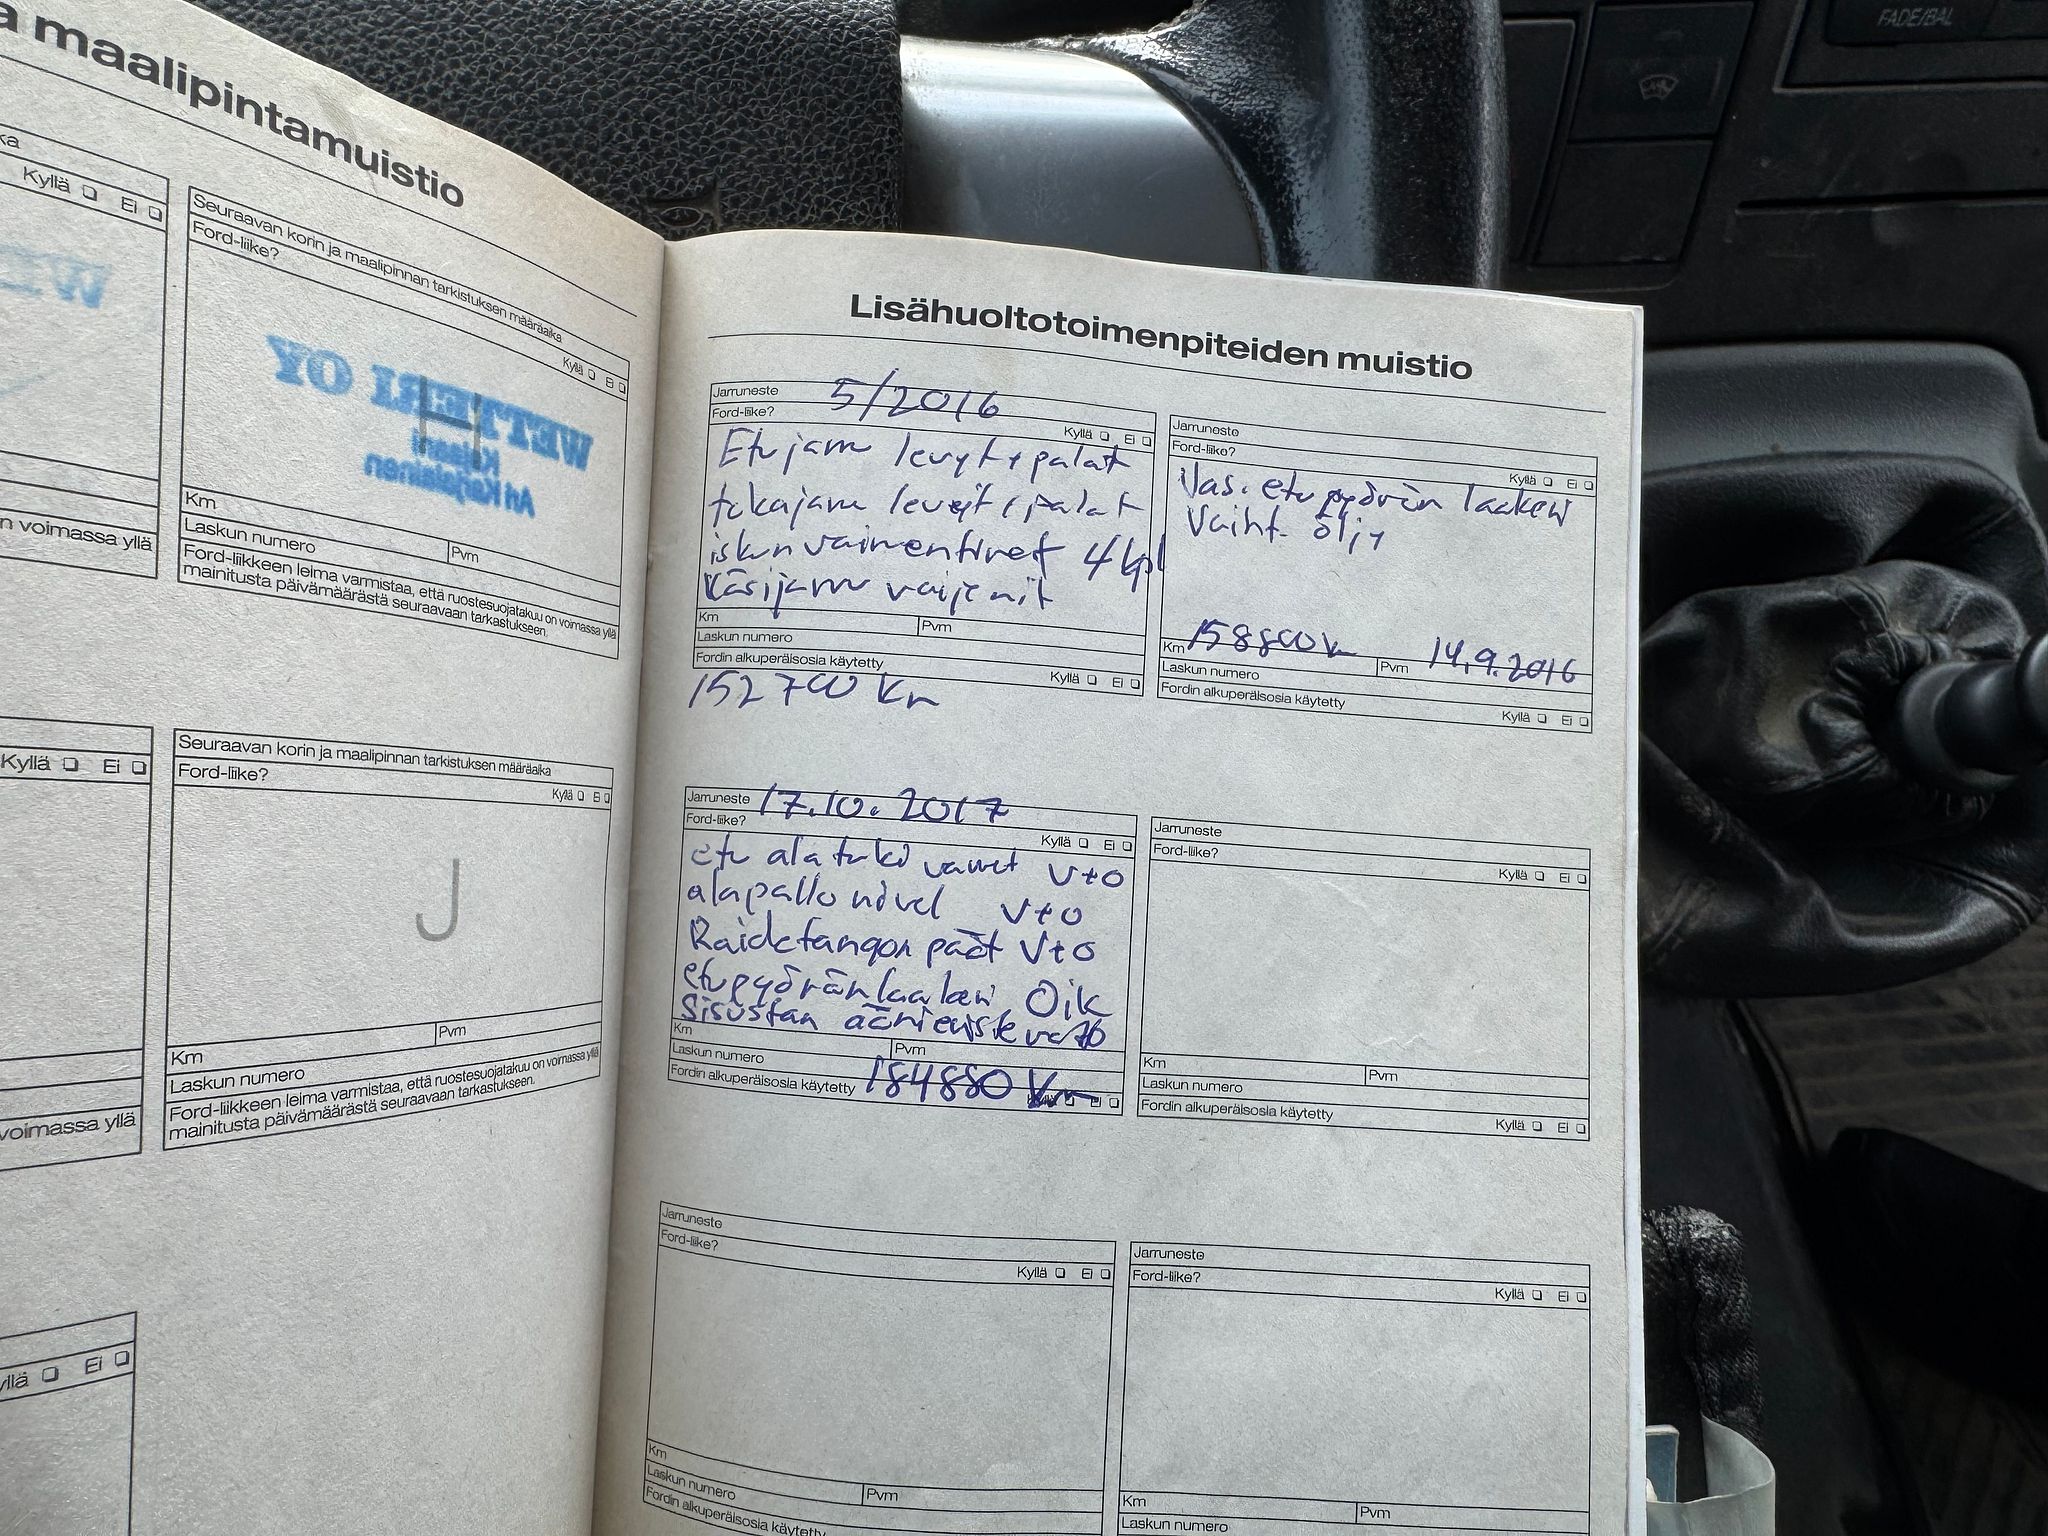 a maalipintamuistio
ka
Kyllä ❏ Ei ❏
n voimassa yllä
Seuraavan korin ja maalipinnan tarkistuksen määräaika
Ford-liike?
Kyllä ❏ Ei ❏
WETTERI OY
Kellosti
Ari Karjalainen
H
Km
Laskun numero
Pvm
Ford-liikkeen leima varmistaa, että ruostesuojatakuu on voimassa yllä
mainitusta päivämäärästä seuraavaan tarkastukseen.
Kyllä ❏ Ei ❏
voimassa yllä
Seuraavan korin ja maalipinnan tarkistuksen määräaika
Ford-liike?
Kyllä ❏ Ei ❏
J
Km
Pvm
Laskun numero
Ford-liikkeen leima varmistaa, että ruostesuojatakuu on voimassa yllä
mainitusta päivämäärästä seuraavaan tarkastukseen.
yllä ❏ Ei ❏
Lisähuoltotoimenpiteiden muistio
Jarruneste 5/2016
Ford-liike?
Kyllä ❏ Ei ❏
Etujarru levyt + palat
takajarru levyt + palat
iskunvaimentimet 4 kpl
Käsijarru vaijerit
Km
Pvm
Laskun numero
Fordin alkuperäisosia käytetty
Kyllä ❏ Ei ❏
152700 km
Jarruneste
Ford-liike?
Kyllä ❏ Ei ❏
Vas. etupyörän laakeri
Vaiht. öljy
Km 158800 km Pvm 14.9.2016
Laskun numero
Fordin alkuperäisosia käytetty
Kyllä ❏ Ei ❏
Jarruneste 17.10.2017
Ford-liike?
Kyllä ❏ Ei ❏
etu alatuki varret V+O
alapallonivel V+O
Raidetangon päät V+O
etupyörän laakeri Oik
sisustan
Km
Pvm
Laskun numero
Fordin alkuperäisosia käytetty 184880 km
Kyllä ❏ Ei ❏
Jarruneste
Ford-liike?
Kyllä ❏ Ei ❏
Km
Pvm
Laskun numero
Fordin alkuperäisosia käytetty
Kyllä ❏ Ei ❏
Jarruneste
Ford-liike?
Kyllä ❏ Ei ❏
Km
Laskun numero
Pvm
Fordin alkuperäisosia käytetty
Jarruneste
Ford-liike?
Kyllä ❏ Ei ❏
Km
Pvm
Laskun numero
FADE/BAL